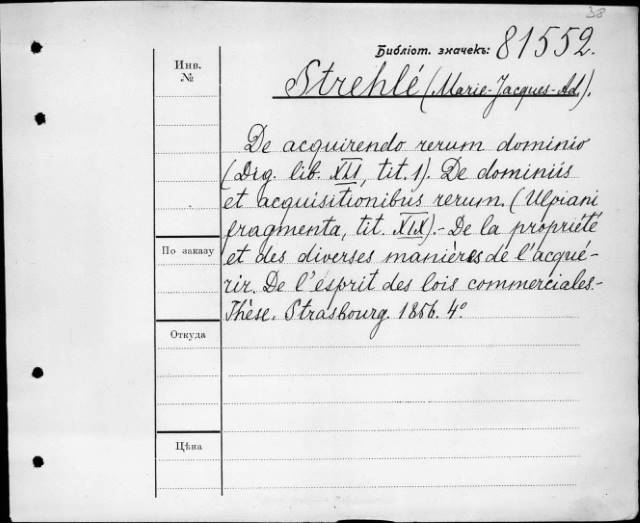 38
Библіот. значекъ: 81552.
Инв.
№
Strehlé (Marie-Jacques-Ad.).
De acquirendo rerum dominio
(Dig. lib. XLI, tit. 1). De dominiis
et acquisitionibus rerum. (Ulpiani
fragmenta, tit. XIX).- De la propriété
По заказу
et des diverses manières de l'acqué-
rir. De l'esprit des lois commerciales.-
Thèse. Strasbourg. 1856. 4°
Откуда
Цѣна